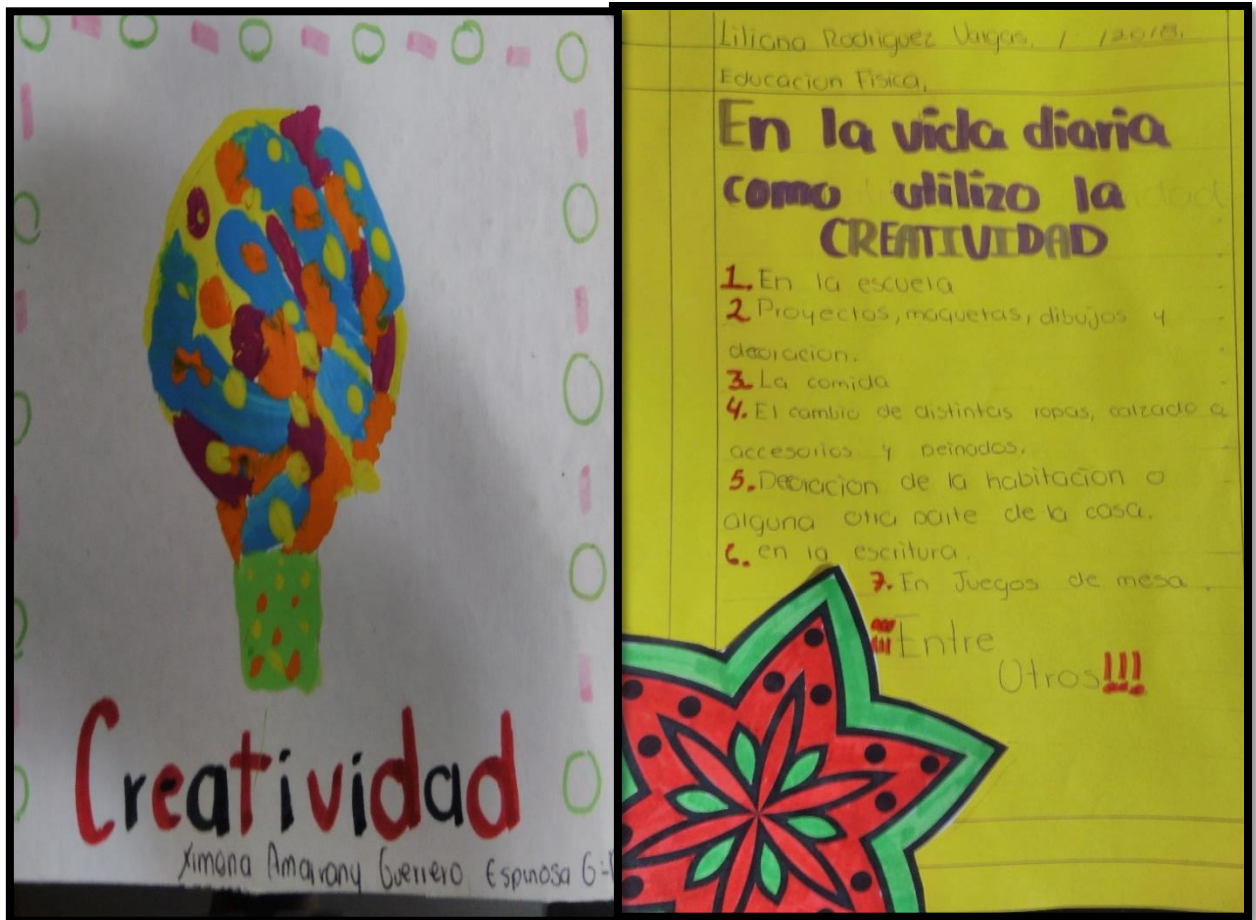 Creatividad
Ximena Amairany Guerrero Espinosa G:
Liliana Rodriguez Vargas. / /2018.
Educacion Fisica,
En la vida diaria
como utilizo la
CREATIVIDAD
1. En la escuela
2 Proyectos, maquetas, dibujos y
decoracion.
3. La comida
4. El cambio de distintas ropas, calzado a
accesorios y peinados.
5. Decoracion de la habitacion o
alguna otra parte de la casa.
6. en la escritura.
7. En Juegos de mesa.
¡¡¡Entre
Otros!!!